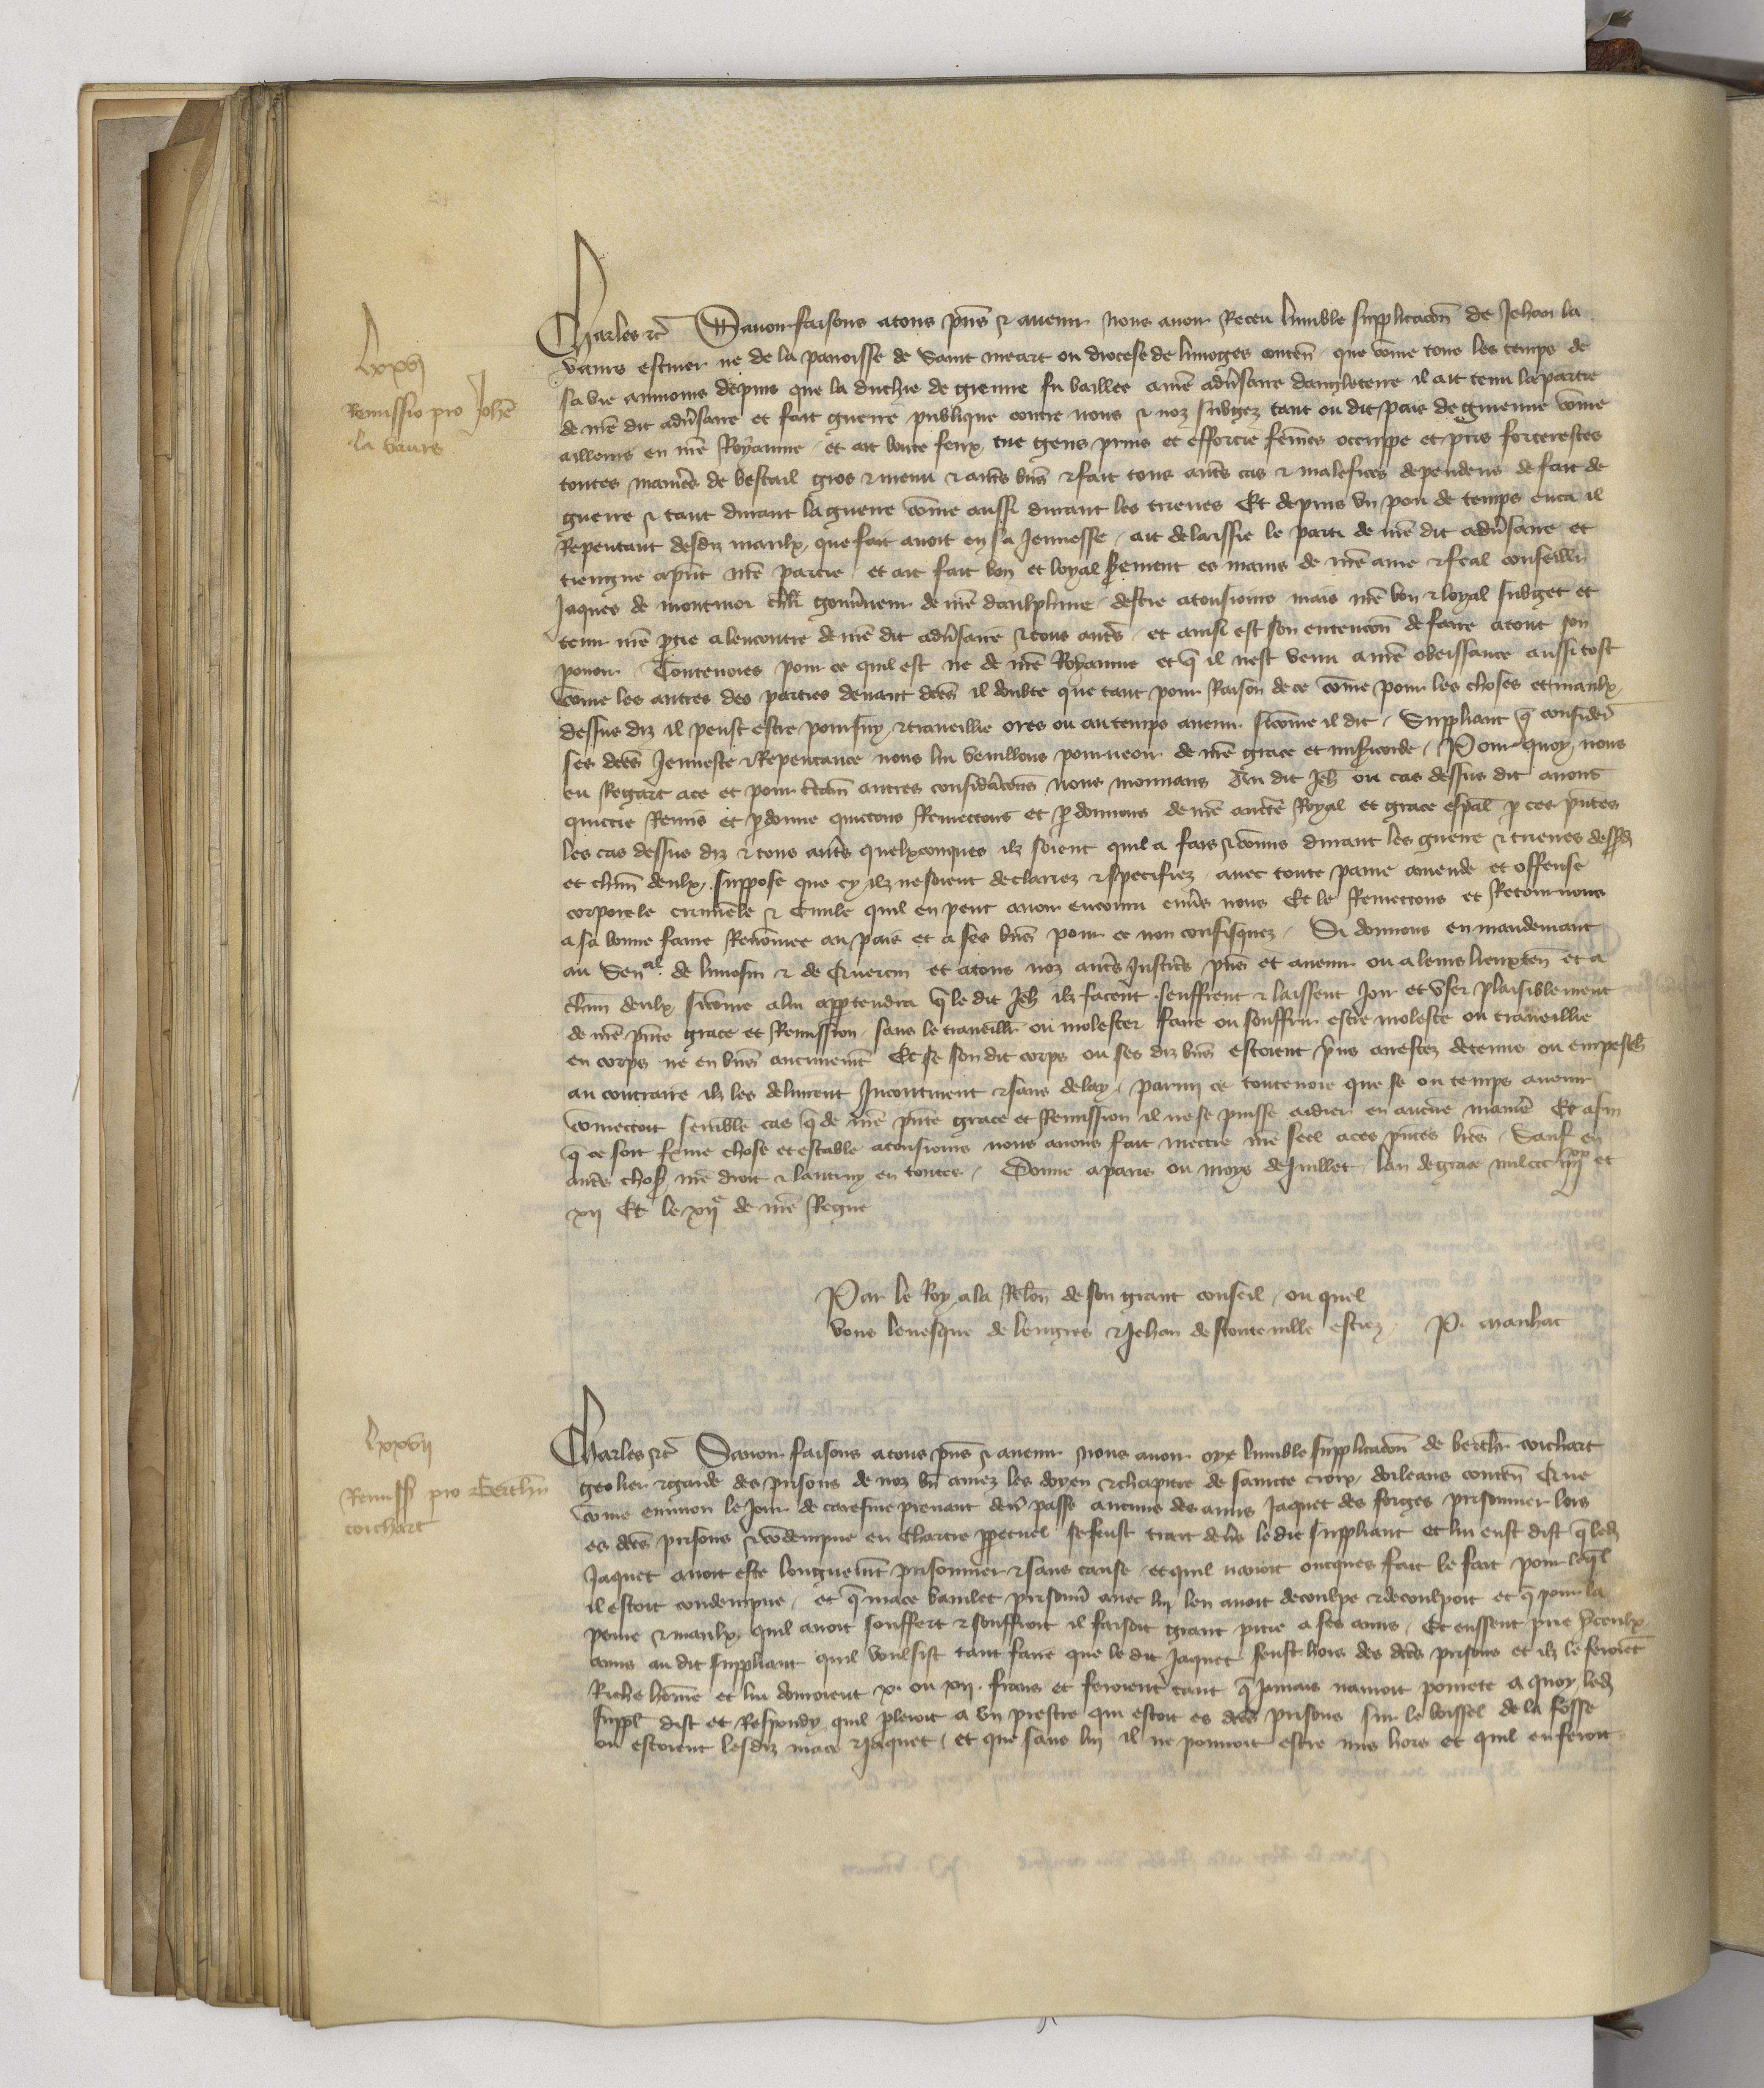 Charles etc̃ Savoir faisons a tous p̃ns & avenir nous avoir Receu lumble supplicacõn de Jehan la
vaure escuier ne de la parroisse de Saint meart ou diocese de limoges conteñ que cõme tous les temps de
sa vie aumoins depuis que la duchie de guienne fu baillee a nr̃e adṽsaire dangleterre il ait tenu la partie
de nr̃e dit adṽsaire et fait guerre publique contre nous & noz subgez tant ou dit pais de guienne cõme
ailleurs en nr̃e Royaume et ait boute feux tue gens prins et efforcie fem̃es occuppe et pris forteresses
toutes manieres de bestail gros & menu & autr̃es biẽs & fait tous autr̃es cas & malefices dependens de fait de
guerre & tant durant la guerre cõme aussi durant les trieves Et depuis un pou de temps enca il
Repentant desdiz maulx que fait avoit en sa Jennesse ait delaissie le parti de nr̃e dit adṽsaire et
tiengne apñt nr̃e partie et ait fait bon et loyal s̃ement es mains de nr̃e ame & feal conseillr̃
Jaques de montmor chlr̃ gouv̾neur de nr̃e daulphine destre atousiours mais nr̃e bon & loyal subget et
tenir nr̃e p̃tie alencontre de nr̃e dit adṽsaire & tous autr̃es et ainsi est son entencõn de faire a tout son
povoir Toutevoies pour ce quil est ne de nr̃e Royaume et q̃ il nest venu a nr̃e obeissance aussi tost
cõme les autres des parties devant dcẽs il doubte que tant pour Raison de ce cõme pour les choses et maulx
dessus diz il peust estre poursuy & traveillie ores ou au temps avenir sicõme il dit Suppliant q̃ consider̃
ses dcẽs Jennesse & Repentance nous lui veuillons pourveoir de nr̃e grace et mis̃icorde Pour quoy nous
eu Regart a ce et pour c̃taiñ autres considr̃acõns nous mouvans Au dit Jeh̃ ou cas dessus dit avons
quictie Remis et p̱donne quictons Remectons et p̱donnons de nr̃e auctẽ Royal et grace esp̃al p̱ ces p̃ntes
les cas dessus diz & tous autr̃es quelxconques ilz soient quil a fais & cõmis durant les guerre & trieves dessusd̃
et chũn deulx suppose que cy ilz ne soient declairez & specifiez avec toute paine amende et offense
corporele criminele & Civile quil en peut avoir encouru env̾s nous Et le Remectons et Retournons
a sa bonne fame Renõmee au pais et a ses biẽs pour ce non confisquez Si donnons en mandemant
au Sen^al de limosin & de Quercin et atous noz autr̃es Justicr̃s p̃ns et avenir ou a leurs lieuxteñ et a
chũn deulx sicõme a lui app̱tendra q̃ le dit Jeh̃ ilz facent seuffrent & laissent Joir et user plaisiblement
de nr̃e p̃nte grace et Remission sans le traveillr̃ ou molester faire ou souffrir estre moleste ou traveillie
en corps ne en biẽs aucunemẽt Et se son dit corps ou ses diz biẽs estoient p̃ns arrestez detenus ou empesch̃
au contraire ilz les delivrent Incontinent & sans delay parmi ce toutevoie que se ou temps avenir
cõmectoit semblẽ cas q̃ de nr̃e p̃nte grace et Remission il ne se puisse aidier en aucune manier̃e Et afin
q̃ ce soit ferme chose et estable atousiours nous avons fait mectre nr̃e seel a ces p̃ntes lr̃es Sauf en
autr̃es choses nr̃e droit & lautruy en toutes Donne a paris ou moys de Juillet lan de grace mil ccc iiii^xx et
xii Et le xii^e de nr̃e Regne
Par le Roy a la Relõn de son grant conseil ou quel
vous levesque de lengres & Jehan destouteville estiez P. Manhac
lxxvi
Remissio pro Johẽ
la vaure
Charles etc̃ Savoir faisons a tous p̃ns & avenir nous avoir oye lumble supplicacõn de berthl̃ corchart
geolier & garde des prisons de noz bñ amez les doyen & chappitre de saincte croix dorleans conteñ Que
cõme environ le Jour de caresme prenant derr̃ passe aucuns des amis Jaquet des forges prisonnier lors
es dcẽs prisons & condempne en Chartre p̱petuel se feust trait dev̾s le dit suppliant et lui eust dist q̃ led̃
Jaquet avoit este longuemt̃ prisonnier & sans cause et quil navoit oncques fait le fait pour leq̃l
il estoit condempne et q̃ mace baulet prisonñ avec luy len avoit descoulpe & descoulpoit et q̃ pour la
peine & maulx quil avoit souffert & souffroit il faisoit grant pitie a ses amis Et eussent prie yceulx
amis au dit suppliant quil voulsist tant faire que le dit Jaquet feust hors des dcẽs prisons et ilz le feroiẽt
Riche hõme et lui donroient x. ou xii. frans et feroient tant q̃ Jamais navroit povrete A quoy led̃
suppl̃ dist et Respondy quil pleroit a un prestre qui estoit es dcẽs prisons sur le boissel de la fosse
ou estoient lesdiz mace & Jaquet et que sans luy il ne pouvoit estre mis hors et quil en feroit
lxxvii
Remiss̃ pro Berthl̃in
corchart